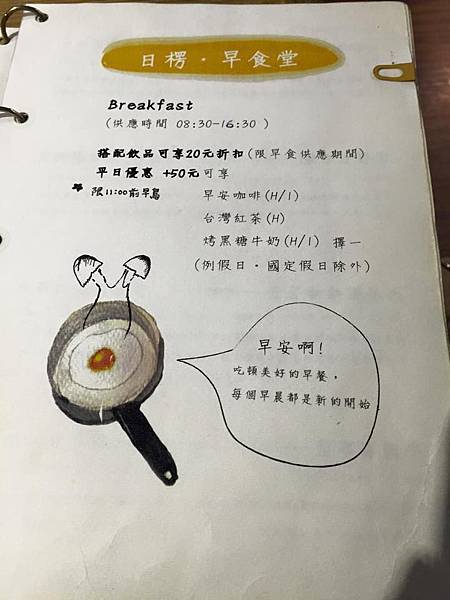 日楞·早食堂
Breakfast
(供應時間 08:30-16:30 )
搭配飲品可享20元折扣(限早食供應期間)
平日優惠 +50元可享
限11:00前早鳥 早安咖啡(H/I)
台灣紅茶(H)
烤黑糖牛奶(H/I) 擇一
(例假日·國定假日除外)
早安啊!
吃頓美好的早餐,
每個早晨都是新的開始